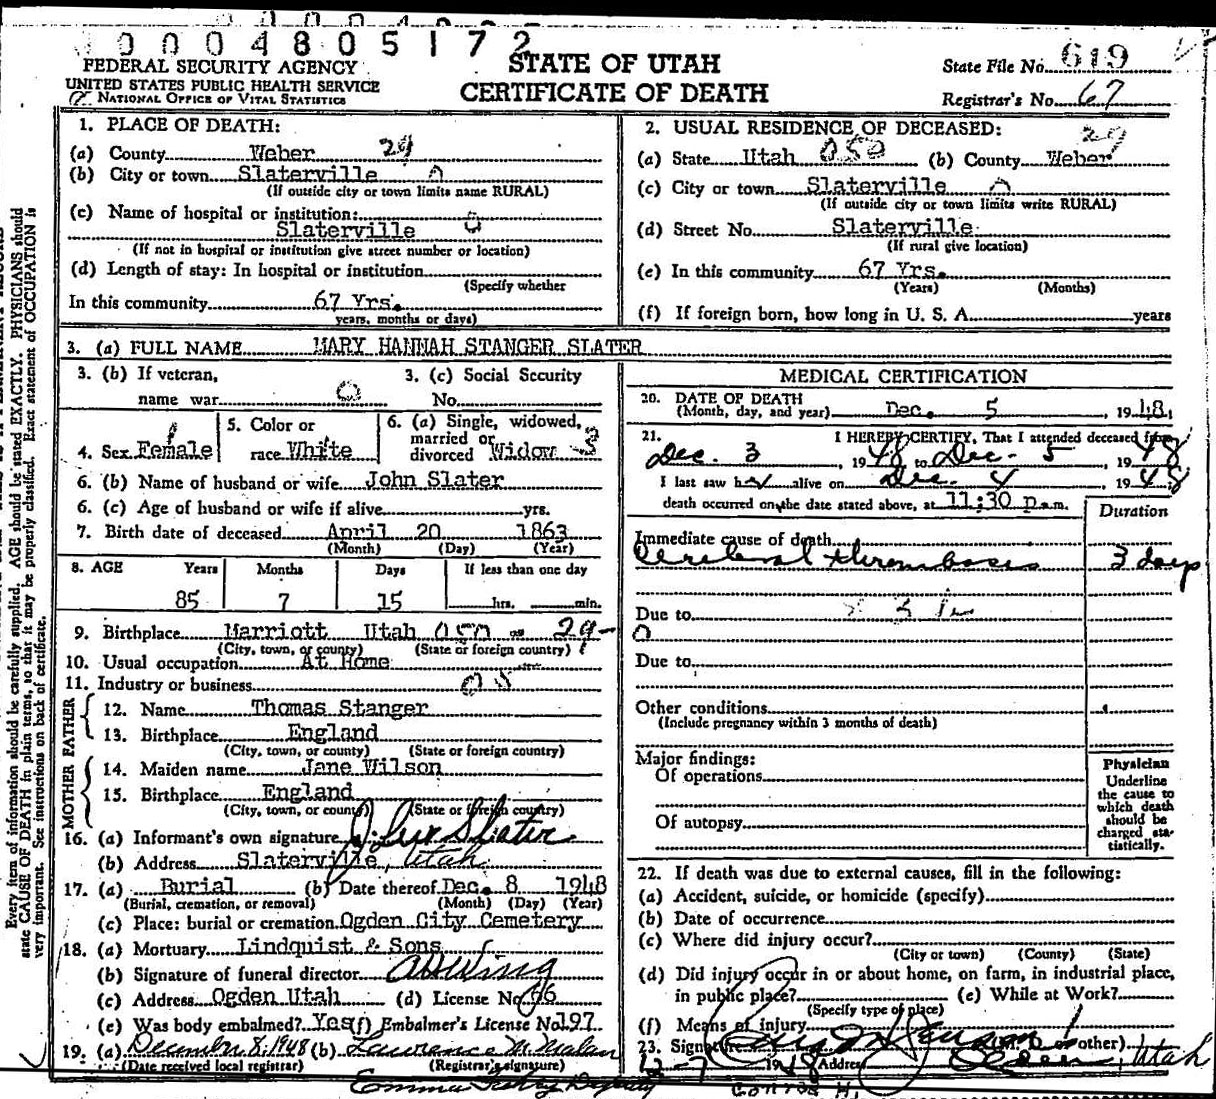 0004805172
FEDERAL SECURITY AGENCY
UNITED STATES PUBLIC HEALTH SERVICE
NATIONAL OFFICE OF VITAL STATISTICS
STATE OF UTAH
CERTIFICATE OF DEATH
State File No. 619
Registrar's No. 67
Every item of information should be carefully supplied. AGE should be stated EXACTLY. PHYSICIANS should
state CAUSE OF DEATH in plain terms, so that it may be properly classified. Exact statement of OCCUPATION is
very important. See instructions on back of certificate.
1. PLACE OF DEATH:
(a) County Weber 29
(b) City or town Slaterville
(If outside city or town limits name RURAL)
(c) Name of hospital or institution:
Slaterville
(If not in hospital or institution give street number or location)
(d) Length of stay: In hospital or institution
(Specify whether
In this community 67 Yrs.
years, months or days)
2. USUAL RESIDENCE OF DECEASED:
29
(a) State Utah 050 (b) County Weber
(c) City or town Slaterville
(If outside city or town limits write RURAL)
(d) Street No. Slaterville
(If rural give location)
(e) In this community 67 Yrs.
(Years) (Months)
(f) If foreign born, how long in U. S. A. years
3. (a) FULL NAME MARY HANNAH STANGER SLATER
3. (b) If veteran,
name war 0
3. (c) Social Security
No.
4. Sex Female
5. Color or
race White
6. (a) Single, widowed,
married or
divorced Widow 3
6. (b) Name of husband or wife John Slater
6. (c) Age of husband or wife if alive yrs.
7. Birth date of deceased April 20 1863
(Month) (Day) (Year)
8. AGE Years Months Days If less than one day
85 7 15 hrs. min.
9. Birthplace Marriott Utah 050 29
(City, town, or county) (State or foreign country)
10. Usual occupation At Home
11. Industry or business
FATHER
12. Name Thomas Stanger
13. Birthplace England
(City, town, or county) (State or foreign country)
MOTHER
14. Maiden name Jane Wilson
15. Birthplace England
(City, town, or county) (State or foreign country)
16. (a) Informant's own signature Slater
(b) Address Slaterville, Utah
17. (a) Burial (b) Date thereof Dec. 8 1948
(Burial, cremation, or removal) (Month) (Day) (Year)
(c) Place: burial or cremation Ogden City Cemetery
18. (a) Mortuary Lindquist & Sons
(b) Signature of funeral director
(c) Address Ogden Utah (d) License No. 66
(e) Was body embalmed? Yes (f) Embalmer's License No. 197
19. (a) December 8, 1948 (b) Lawrence M. Malan
(Date received local registrar) (Registrar's signature)
Emma Deputy
MEDICAL CERTIFICATION
20. DATE OF DEATH
(Month, day, and year) Dec. 5, 1948
21. I HEREBY CERTIFY, That I attended deceased from
Dec. 3, 1948 to Dec. 5, 1948
I last saw her alive on Dec. 4, 1948
death occurred on the date stated above, at 11:30 p.m.
Duration
Immediate cause of death
Cerebral thrombosis 3 days
Due to
Due to
Other conditions
(Include pregnancy within 3 months of death)
Major findings:
Of operations
Of autopsy
Physician
Underline
the cause to
which death
should be
charged sta-
tistically.
22. If death was due to external causes, fill in the following:
(a) Accident, suicide, or homicide (specify)
(b) Date of occurrence
(c) Where did injury occur?
(City or town) (County) (State)
(d) Did injury occur in or about home, on farm, in industrial place,
in public place? (e) While at Work?
(Specify type of place)
(f) Means of injury
23. Signature or other)
12-7 1948 Address Ogden, Utah
Conrad H.